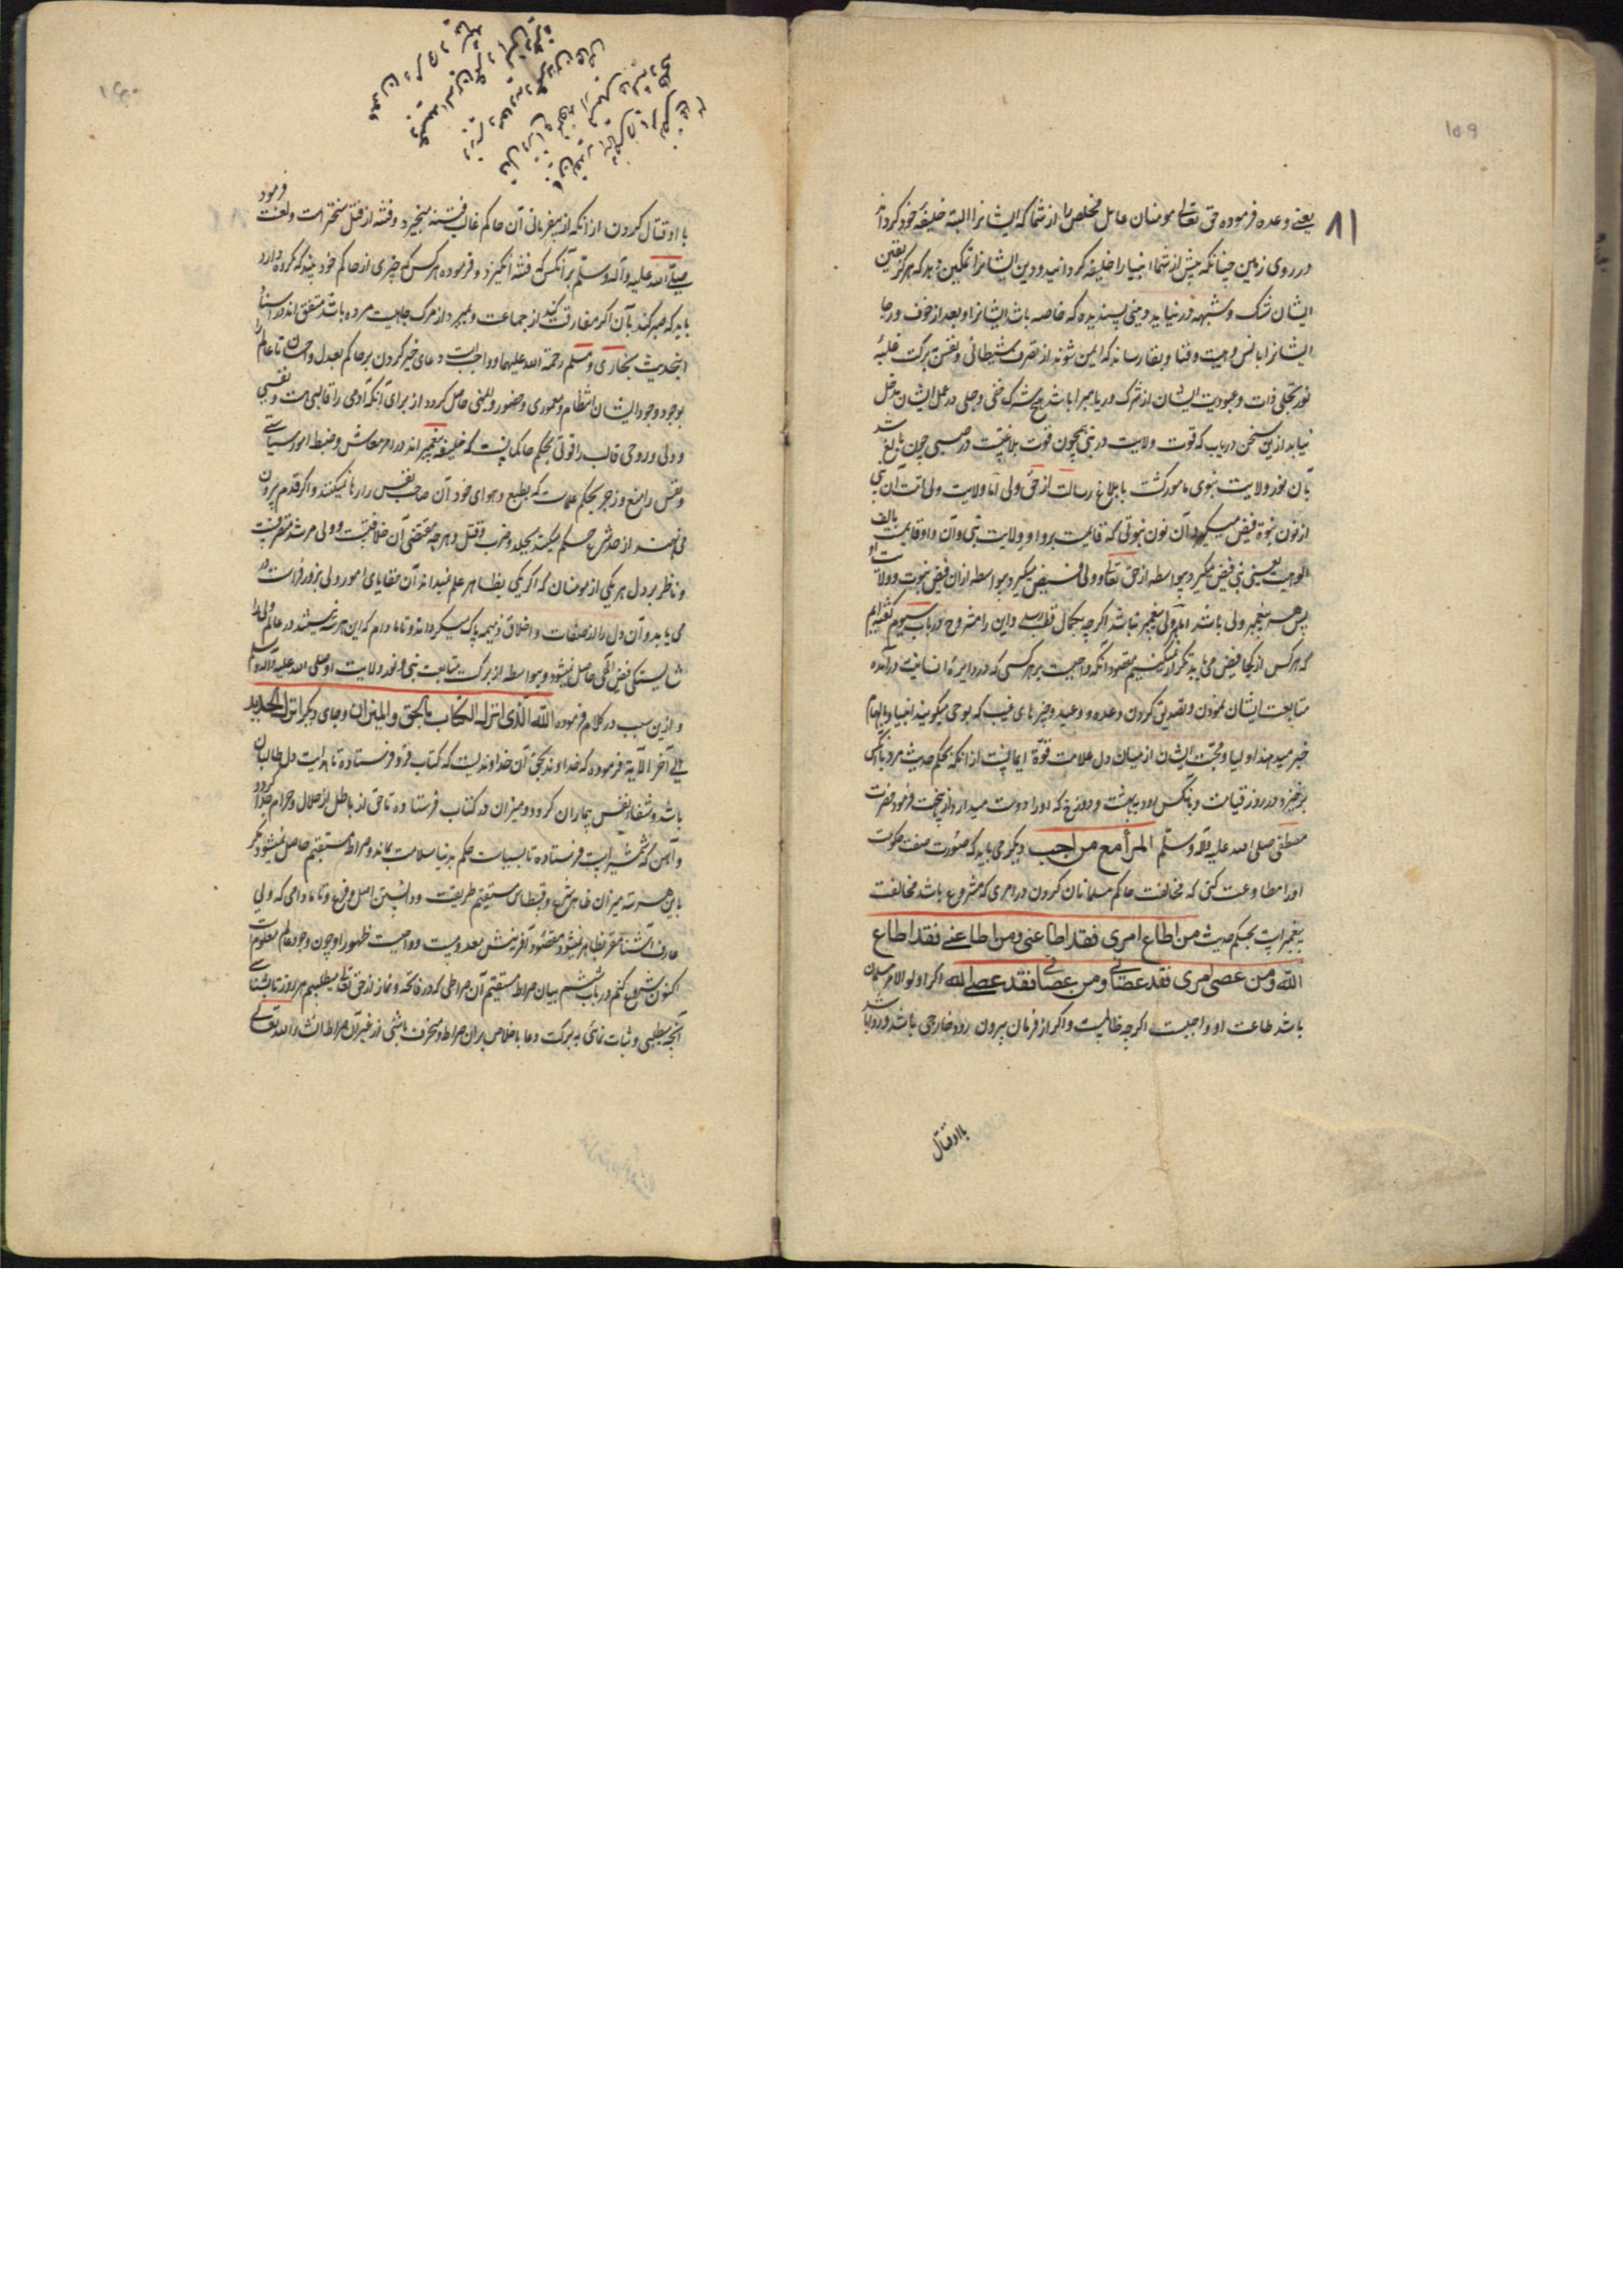 ۸۱
یعنی وعده فرموده حق تعالی مومنان عامل مخلص را از شما که ایشانرا البته خلیفه خود گرداند
در روی زمین چنانکه پیش از شما انبیا را خلیفه گردانید و دین ایشانرا تمکین دهد که هرگز یقین
ایشان شک و شبهه در نیاید دینی پسندیده که خاصه باشد ایشانرا و بعد از خوف و رجا
ایشانرا بانس و هیبت و فنا و بقا رساند که ایمن شوند از تصرف شیطانی و نفس ببرکت غلبهٔ
نور تجلی ذات و عبودیت ایشان از شرک و ریا مبرا باشد هیچ شرک خفی و جلی در عمل ایشان مدخل
نیابد ازین سخن دریاب که قوت ولایت در نبی همچون قوت بلاغتست در صبی چون بالغ شد
بآن نور ولایت نبوی مامور گشت بابلاغ رسالت از حق ولی اما ولایت ولی امت آن نبی
از نون نبوة فیض میگیرد آن نون نبوتی که قایمست بر واو ولایت نبی و آن واو قایمست بالف
الوهیت یعنی نبی فیض میگیرد بیواسطه از حق تعالی و ولی فیض میگیرد بواسطه ازان فیض نبوت و ولایت او
پس همه پیغمبر ولی باشند اما ولی پیغمبر نباشد اگرچه بکمال قطب رسد و این را مشروح در باب سیوم گفته‌ایم
که هر کس از کجا فیض می یابد تکرار نمیکنیم مقصود آنکه واجبست بر هر کسی که در دایرهٔ انسانیت درآمده
متابعت ایشان نمودن و تصدیق کردن وعده و وعید و خبرهای غیب که بوحی میگویند انبیا و بالهام
خبر میدهند اولیا و محبت ایشان از میان دل علامت قوة ایمانست از آنکه بحکم حدیث مرد با آنکس
برخیزد در روز قیامت و با آنکس رود ببهشت و دوزخ که او را دوست میدارد ازینجهت فرمود حضرت
مصطفی صلی الله علیه و آله و سلم المرأ مع من احب و دیگر می باید که صورت صفت حکومت
او را مطاوعت کنی که مخالفت حاکم مسلمانان کردن در امری که مشروع باشد مخالفت
پیغمبرست بحکم حدیث من اطاع امری فقد اطاعنی و من اطاعنی فقد اطاع
الله و من عصی امری فقد عصانی و من عصانی فقد عصی الله اگر اولوالامر مسلمان
باشد طاعت او واجبست اگرچه ظالمست و اگر از فرمان بیرون رود خارجی باشد و روا باشد
با او قتال
با او قتال کردن از آنکه از بیفرمانی آن حاکم غالب فتنه میخیزد و فتنه از قتل سختر است و لعنت فرمود
صلی الله علیه و آله و سلم بر آنکس که فتنه انگیزد و فرموده هر کس که چیزی از حاکم خود بیند که مکروه دارد
باید که صبر کند بآن اگر مفارقت کند از جماعت و بمیرد از مرگ جاهلیت مرده باشد متفق اند در اسناد
اینحدیث بخاری و مسلم رحمة الله علیهما و واجبست دعای خیر کردن بر حاکم بعدل و احسان تا عالم را
بوجود وجود ایشان انتظام و معموری و حضور و ایمنی حاصل گردد از برای آنکه آدمی را قالبی هست و نفسی
و دلی و روحی قالب را قوتی بحکم حاکمانست که خلیفه پیغمبراند در امر معاش و ضبط امور سیاسی
و نفس را منع و زجر بحکم علماست که بطبع و هوای خود آن صاحب نفس را رها نمیکنند و اگر قدم بیرون
می نهند از حد شرع حکم میکنند بجلد و ضرب و قتل و هر چه مقتضی آن خلافتست و ولی مرشد متصرفست
و ناظر بر دل هر یکی از مومنان که اگر یکی بظاهر علم نمیداند آن خفایای امور ولی بنور فراست در
می یابد و آن دل را از صفات و اخلاق ذمیمه پاک میگرداند و تا مادام که این هر سه نمیشند در عالم ولی را
شایستگی فیض الهی حاصل نمیشود و بیواسطه از برکت متابعت نبی و نور ولایت او صلی الله علیه و آله و سلم
و ازین سبب در کلام فرموده الله الذی انزل الکتاب بالحق و المیزان و جای دیگر انزلنا الحدید
الی آخر الآیة فرموده که خداوند بحق آن خداوندیست که کتاب فرو فرستاده تا هدایت دل طالبان
باشد و شفاء نفس بیماران گردد و میزان در کتاب فرستاده تا حق از باطل و حلال از حرام جدا گردد
و آهن که شمشیرست فرستاده تا بسیاست حکم بدنیا سلامت بماند و صراط مستقیم حاصل نمیشود مگر
باین هر سه میزان ظاهر شرع و قسطاس مستقیم طریقت و دانستن اصل و فرع و تا مادامی که ولی
عارف آشنا مقر بظاهر نمیشود مقصود آفرینش معدومست و واجبست ظهور او چون وجود عالم معلومست
اکنون شروع کنم در باب ششم ببیان صراط مستقیم آن صراطی که در فاتحه و نماز از حق تعالی میطلبیم هر روز تا بشناسی
آنچه میطلبی و ثبات نمائی به برکت دعا باخلاص بران صراط و منحرف باشی از غیر آن صراط انشاء الله تعالی